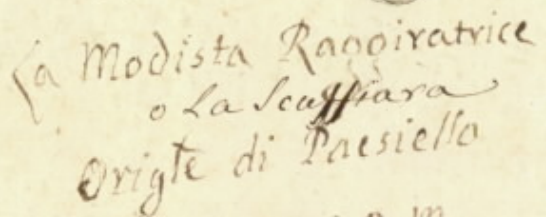 La Modista Raggiratrice
o La Scuffiara
Origle di Paesiello